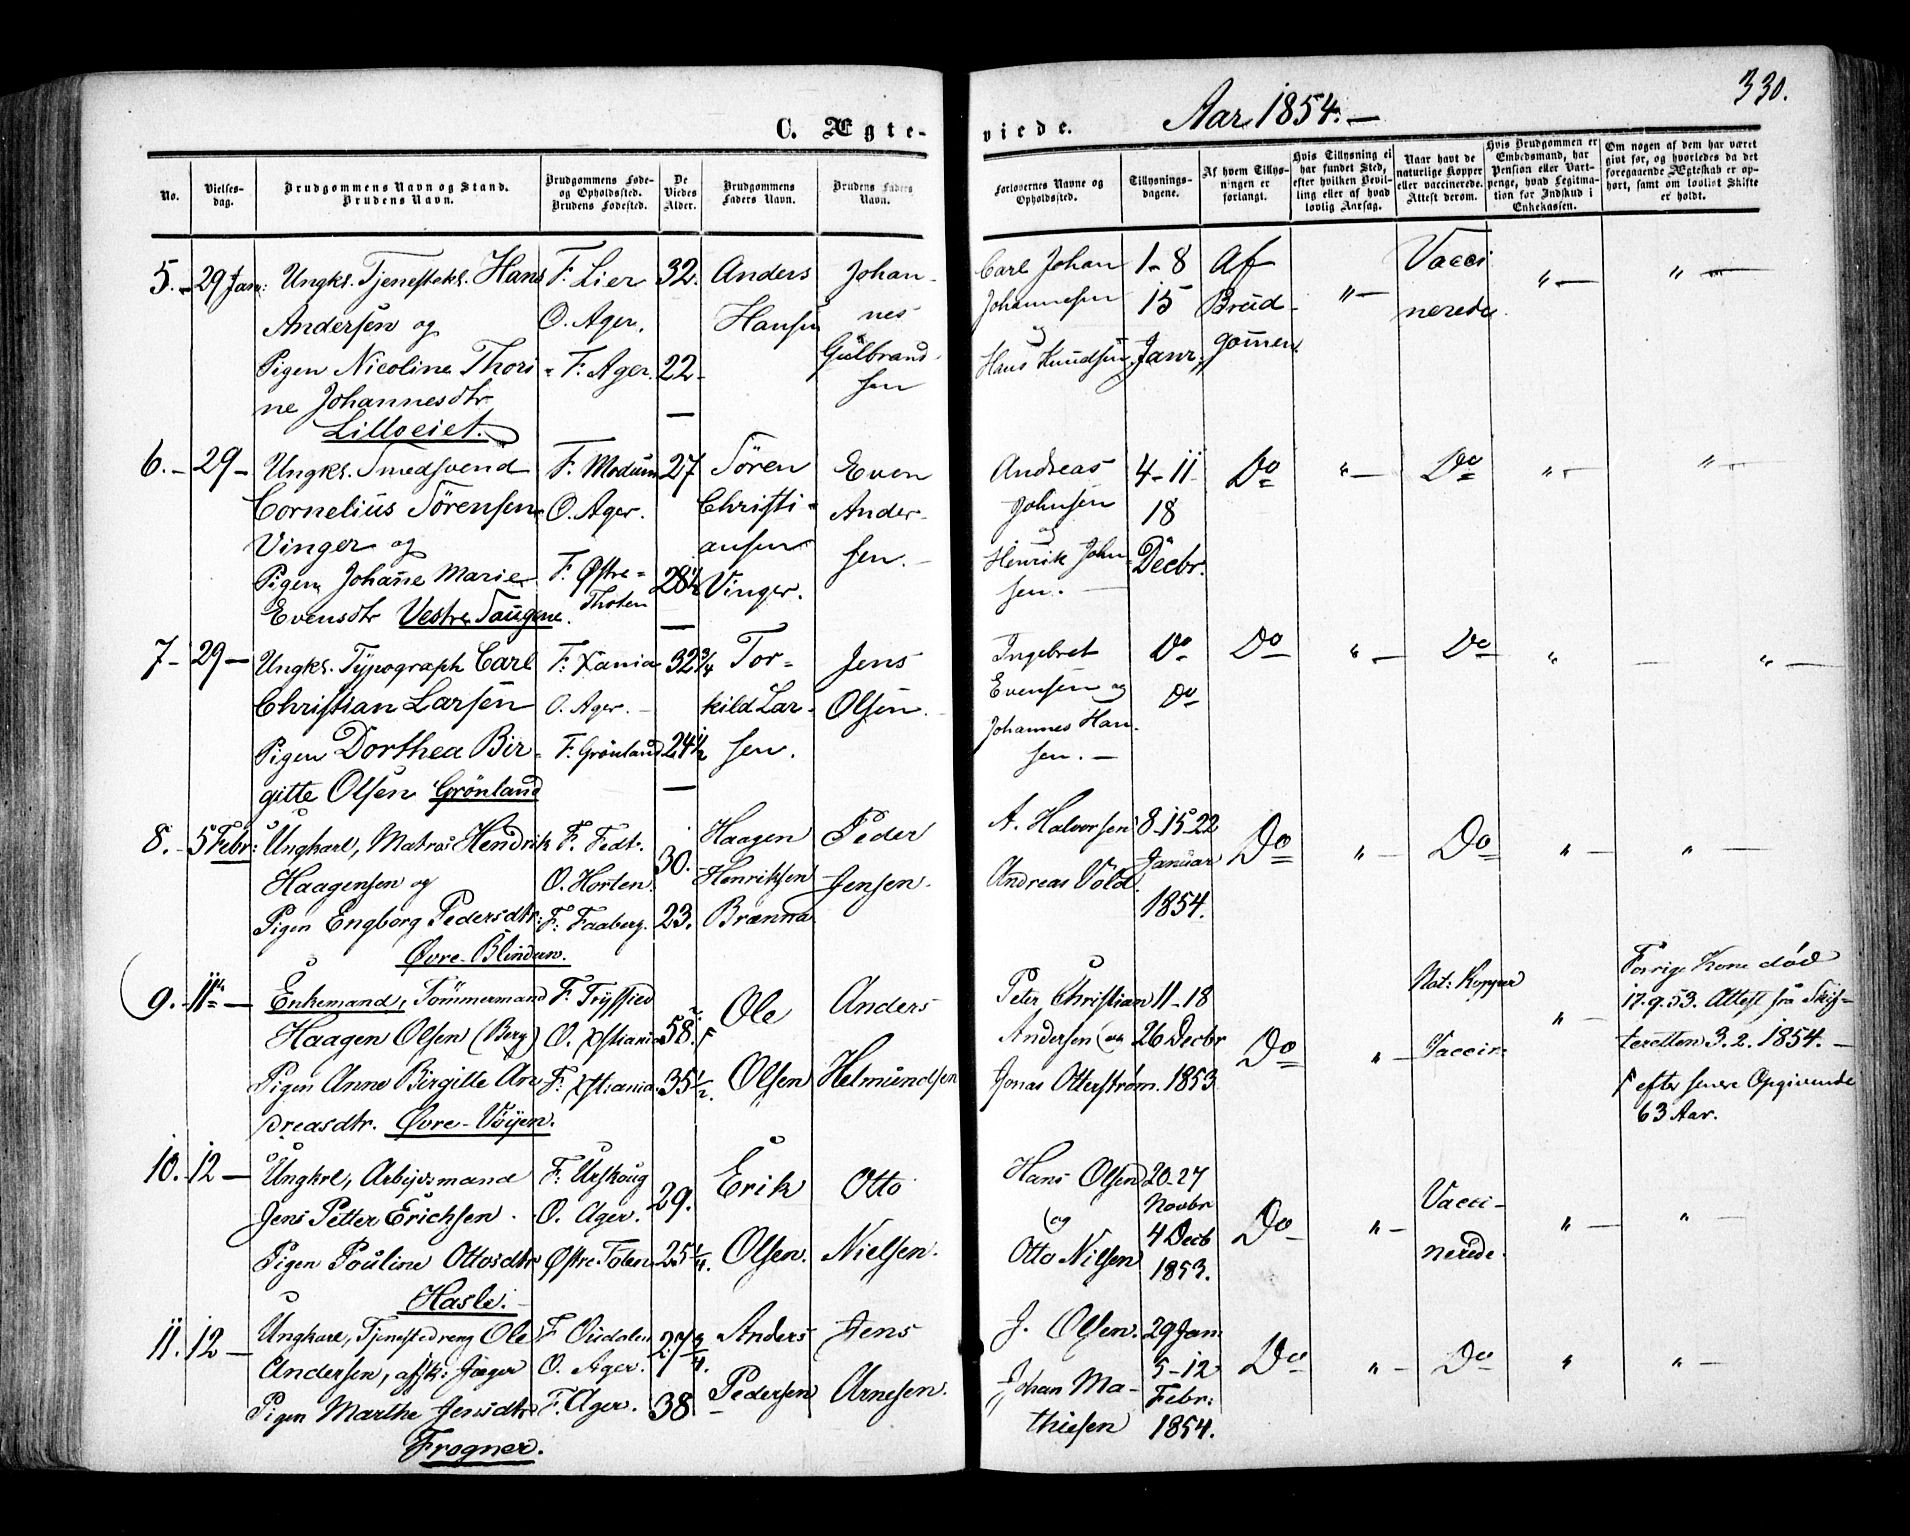 330.
C. Ægte-
viede.
Aar 1854.—
No.
Vielses-
dag.
Brudgommens Navn og Stand.
Brudens Navn.
Brudgommens Føde-
og Opholdssted.
Brudens Fødested.
De
Viedes
Alder.
Brudgommens
Faders Navn.
Brudens Faders
Navn.
Forlovernes Navne og
Opholdssted.
Tillysnings-
dagene.
Af hvem Tillys-
ningen er
forlangt.
Hvis Tillysning ei
har fundet Sted,
efter hvilken Bevil-
ling eller af hvad
lovlig Aarsag.
Naar havt de
naturlige Kopper
eller vaccinerede.
Attest derom.
Hvis Brudgommen er
Embedsmand, har
Pension eller Vart-
penge, hvad Legitma-
tion for Indskud i
Enkekassen.
Om nogen af dem har været
givt for, og hvorledes da det
foregaaende Ægteskab er op-
hørt, samt om lovlist Skifte
er holdt.
5.- 29 Jan: Ungk. Tjenestek. Hans
Andersen og
Pigen Nicoline Thori-
ne Johannesdtr
Lilloeiet.
F. Lier
O. Ager.
F. Ager.
32.
22-
Anders
Hansen
Johan-
nes
Gulbrand-
sen
Carl Johan
Johannesen
og
Hans Knudsen
1-8
15
Janr.
Af
Brud-
gommen.
"—
Vacci
nerede
"—
"—
6.- 29- Ungk. Smedsvend
Cornelius Sörensen
Vinger og
Pigen Johanne Marie
Evensdtr Vestre Taugene.
F. Modum
O. Ager.
F. Østre-
Thoten
27
28½
Sören
Christi-
ansen
Vinger.
Even
Ander-
sen.-
Andreas
Johnsen
og
Henrik John-
sen.-
4-11
18
Decbr.
Do
"—
Do
"-
"-
7- 29— Ungk. Typograph Carl
Christian Larsen
Pigen Dorthea Bir-
gitte Olsen Grönland
F. Xania
O. Ager.-
F. Grönland
32¾
24½
Tor-
kild Lar-
sen.
Jens
Olsen.
Ingebret
Evensen og
Johannes Han-
sen.-
Do
Do
Do
"—
Do
"—
"—
8.- 5 Febr: Ungkarl, Matros Hendrik
Haagensen og
Pigen Engborg Pedersdtr:
Øvre-Blindern.
F. Fedt.
O. Horten.
F. Faaberg.
30.-
23.
Haagen
Henriksen
Brænna
Peder
Jensen.
A. Halvorsen
Andreas Vold.
8-15-22
Januar
1854.
Do
"—
Do
"—
"—
9.- 11te— Enkemand, Tömmermand
Haagen Olsen (Berg)
Pigen Anne Birgitte An-
dreasdtr. Øvre-Vöyen.
F. Tryssied
O. Xstiania
F. Xstiania
58.
35½.
Ole
Olsen
Anders
Helmundsen
Peter Christian
Andersen og
Jonas Otterström.
11-18
26 Decbr
1853
Do
"
Nat: Kopper
Vaccin:
"—
Forrige Kone död
17.9.53. Attest frå Skif-
teretten 3.2.1854.—
efter senere Opgivende
63 Aar.
10.- 12— Ungkrl, Arbejdsmand
Jens Petter Erichsen.
Pigen Pauline Ottosdtr
Hasle.-
F. Urskoug
O. Ager.
Østre Toten
29.
25¼.
Erik
Olsen.
Otto
Nielsen.
Hans Olsen
og
Otto Nilsen
20-27
Novbr
4 Decb
1853.
Do
"—
Vacci-
nerede.
"—
"—
11.- 12— Ungkarl, Tjenestedreng Ole
Andersen, afsk: Jæger
Pigen Marthe Jensdtr
Frogner.
F. Öudalen
O. Ager.
F. Ager.
27¾.
38
Anders
Pedersen
Jens
Arnesen.
J. Olsen.
Johan Ma-
thiesen
29 Jan.
5-12
Febr:
1854.
Do
"—
Do
"
"—